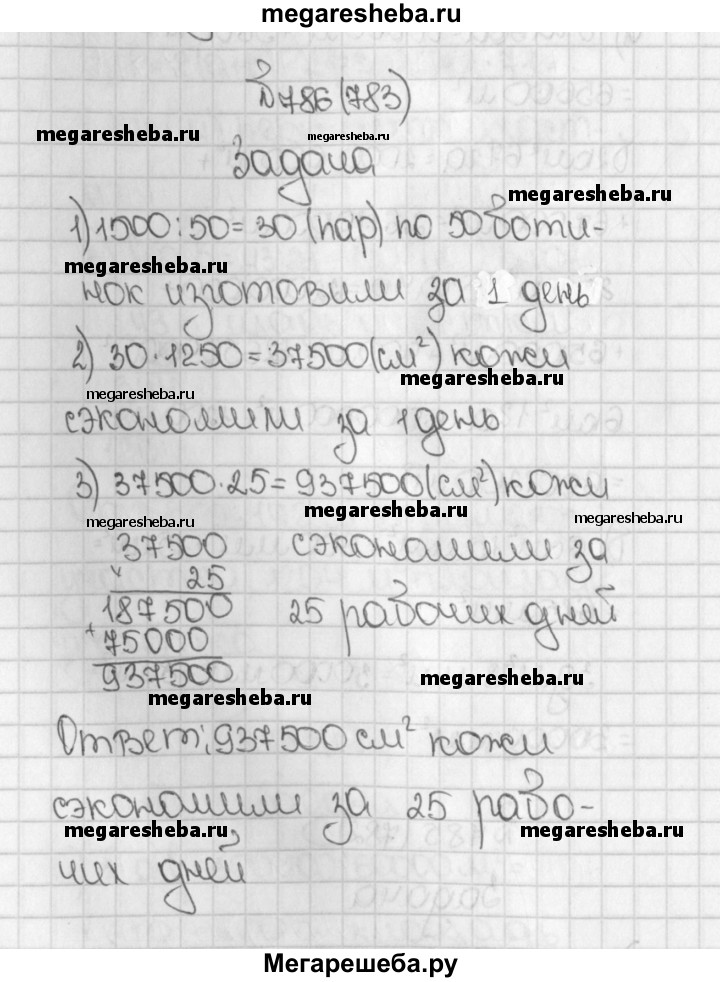 megaresheba.ru
№786 (783)
megaresheba.ru megaresheba.ru
Задача
megaresheba.ru
1) 1500:50=30 (пар) по 50 боти-
megaresheba.ru
нок изготовили за 1 день
2) 30·1250=37500(см²) кожи
megaresheba.ru
megaresheba.ru
сэкономили за 1 день
3) 37500·25=937500(см²) кожи
megaresheba.ru
megaresheba.ru megaresheba.ru
37500 сэкономили за
× 25
187500 25 рабочих дней
+ 75000
937500
megaresheba.ru
megaresheba.ru
Ответ: 937500 см² кожи
сэкономили за 25 рабо-
megaresheba.ru megaresheba.ru
чих дней
Мегарешеба.ру